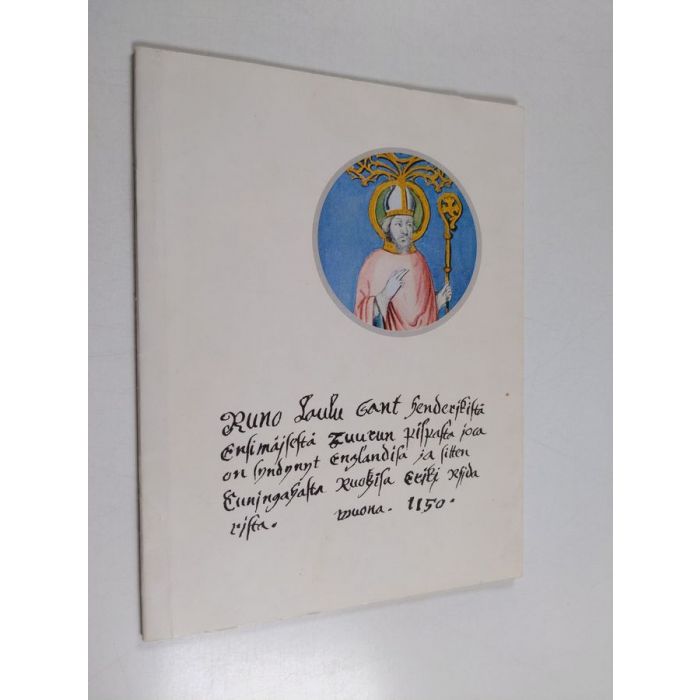 Runo Laulu Sant henderjkistä
Ensimäjsestä Tuurun pispasta joca
on syndynyt Englandisa ja sitten
Cuningahasta Ruotzisa Erikj Rjda
rjsta. wuona. 1150.